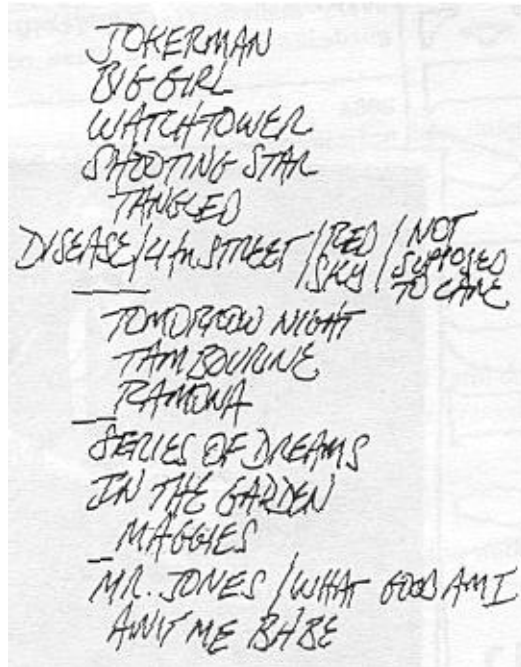 JOKERMAN
BIG GIRL
WATCHTOWER
SHOOTING STAR
TANGLED
DISEASE/4th STREET/RED SKY/NOT SUPPOSED TO CARE
TOMORROW NIGHT
TAMBOURINE
RAMONA
SERIES OF DREAMS
IN THE GARDEN
MAGGIES
MR. JONES / WHAT GOOD AM I
AINT ME BABE